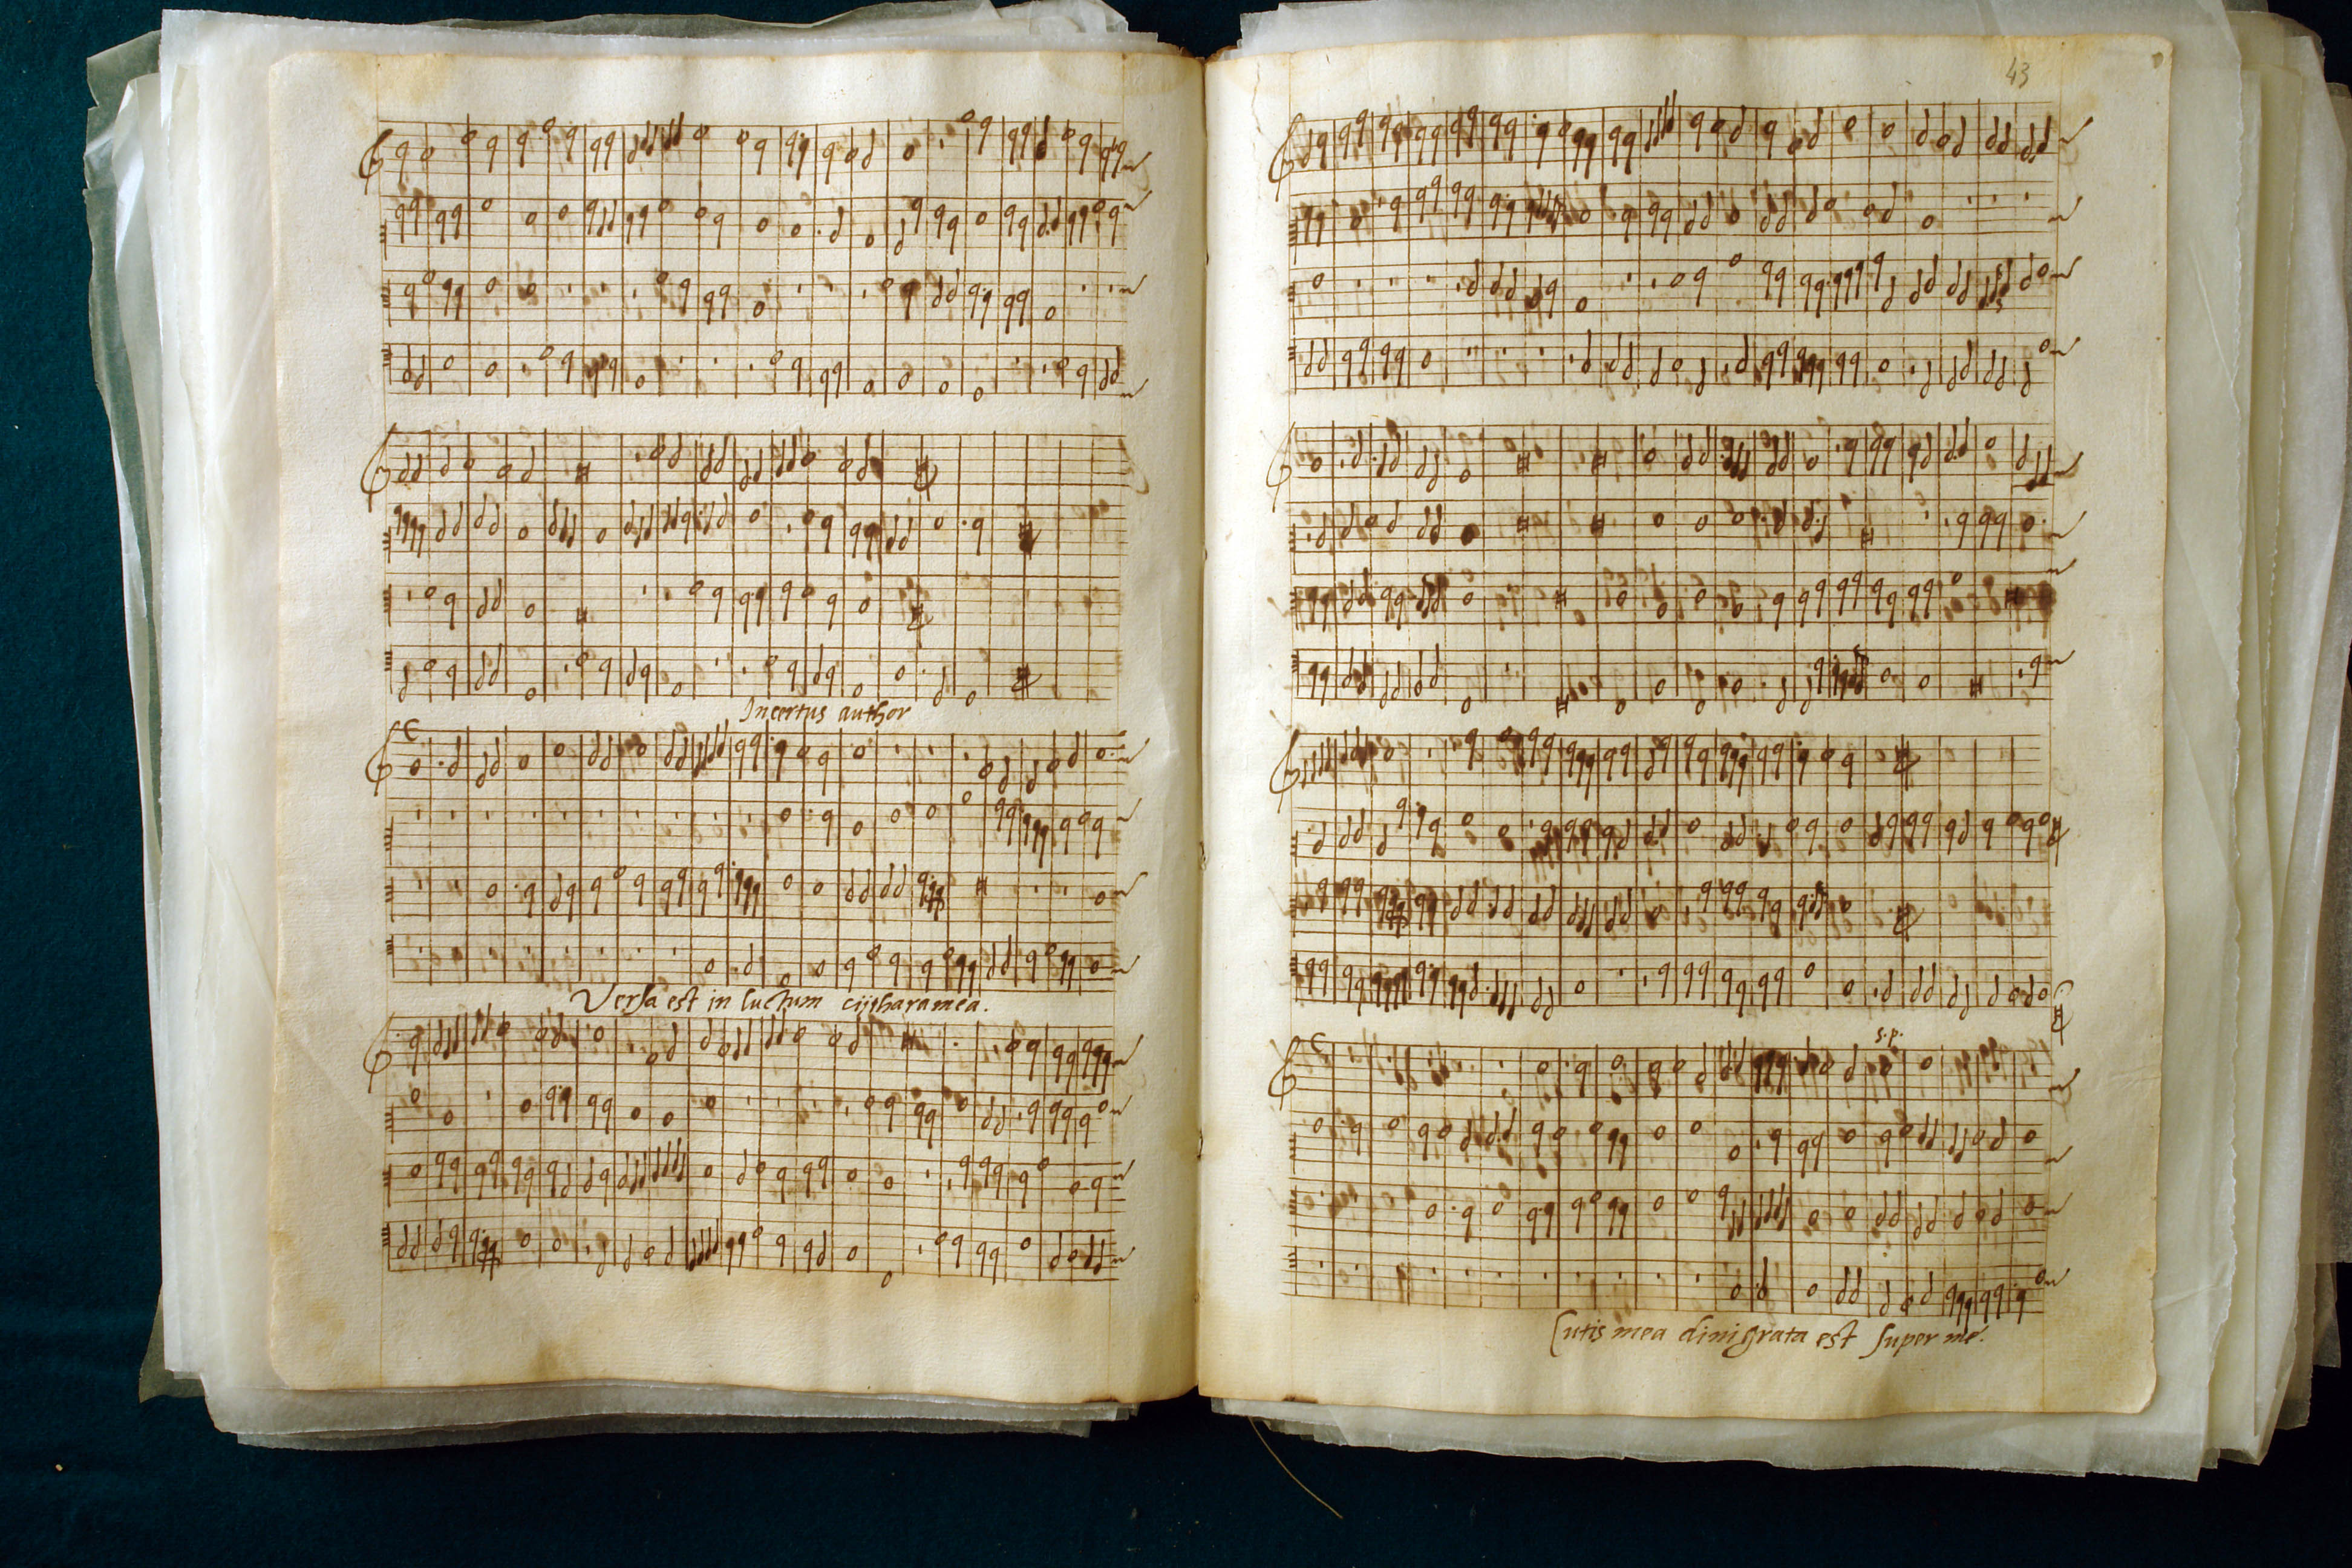 Incertus author
Versa est in luctum cytharamea.
43
s.p.
Cutis mea dinigrata est super me.